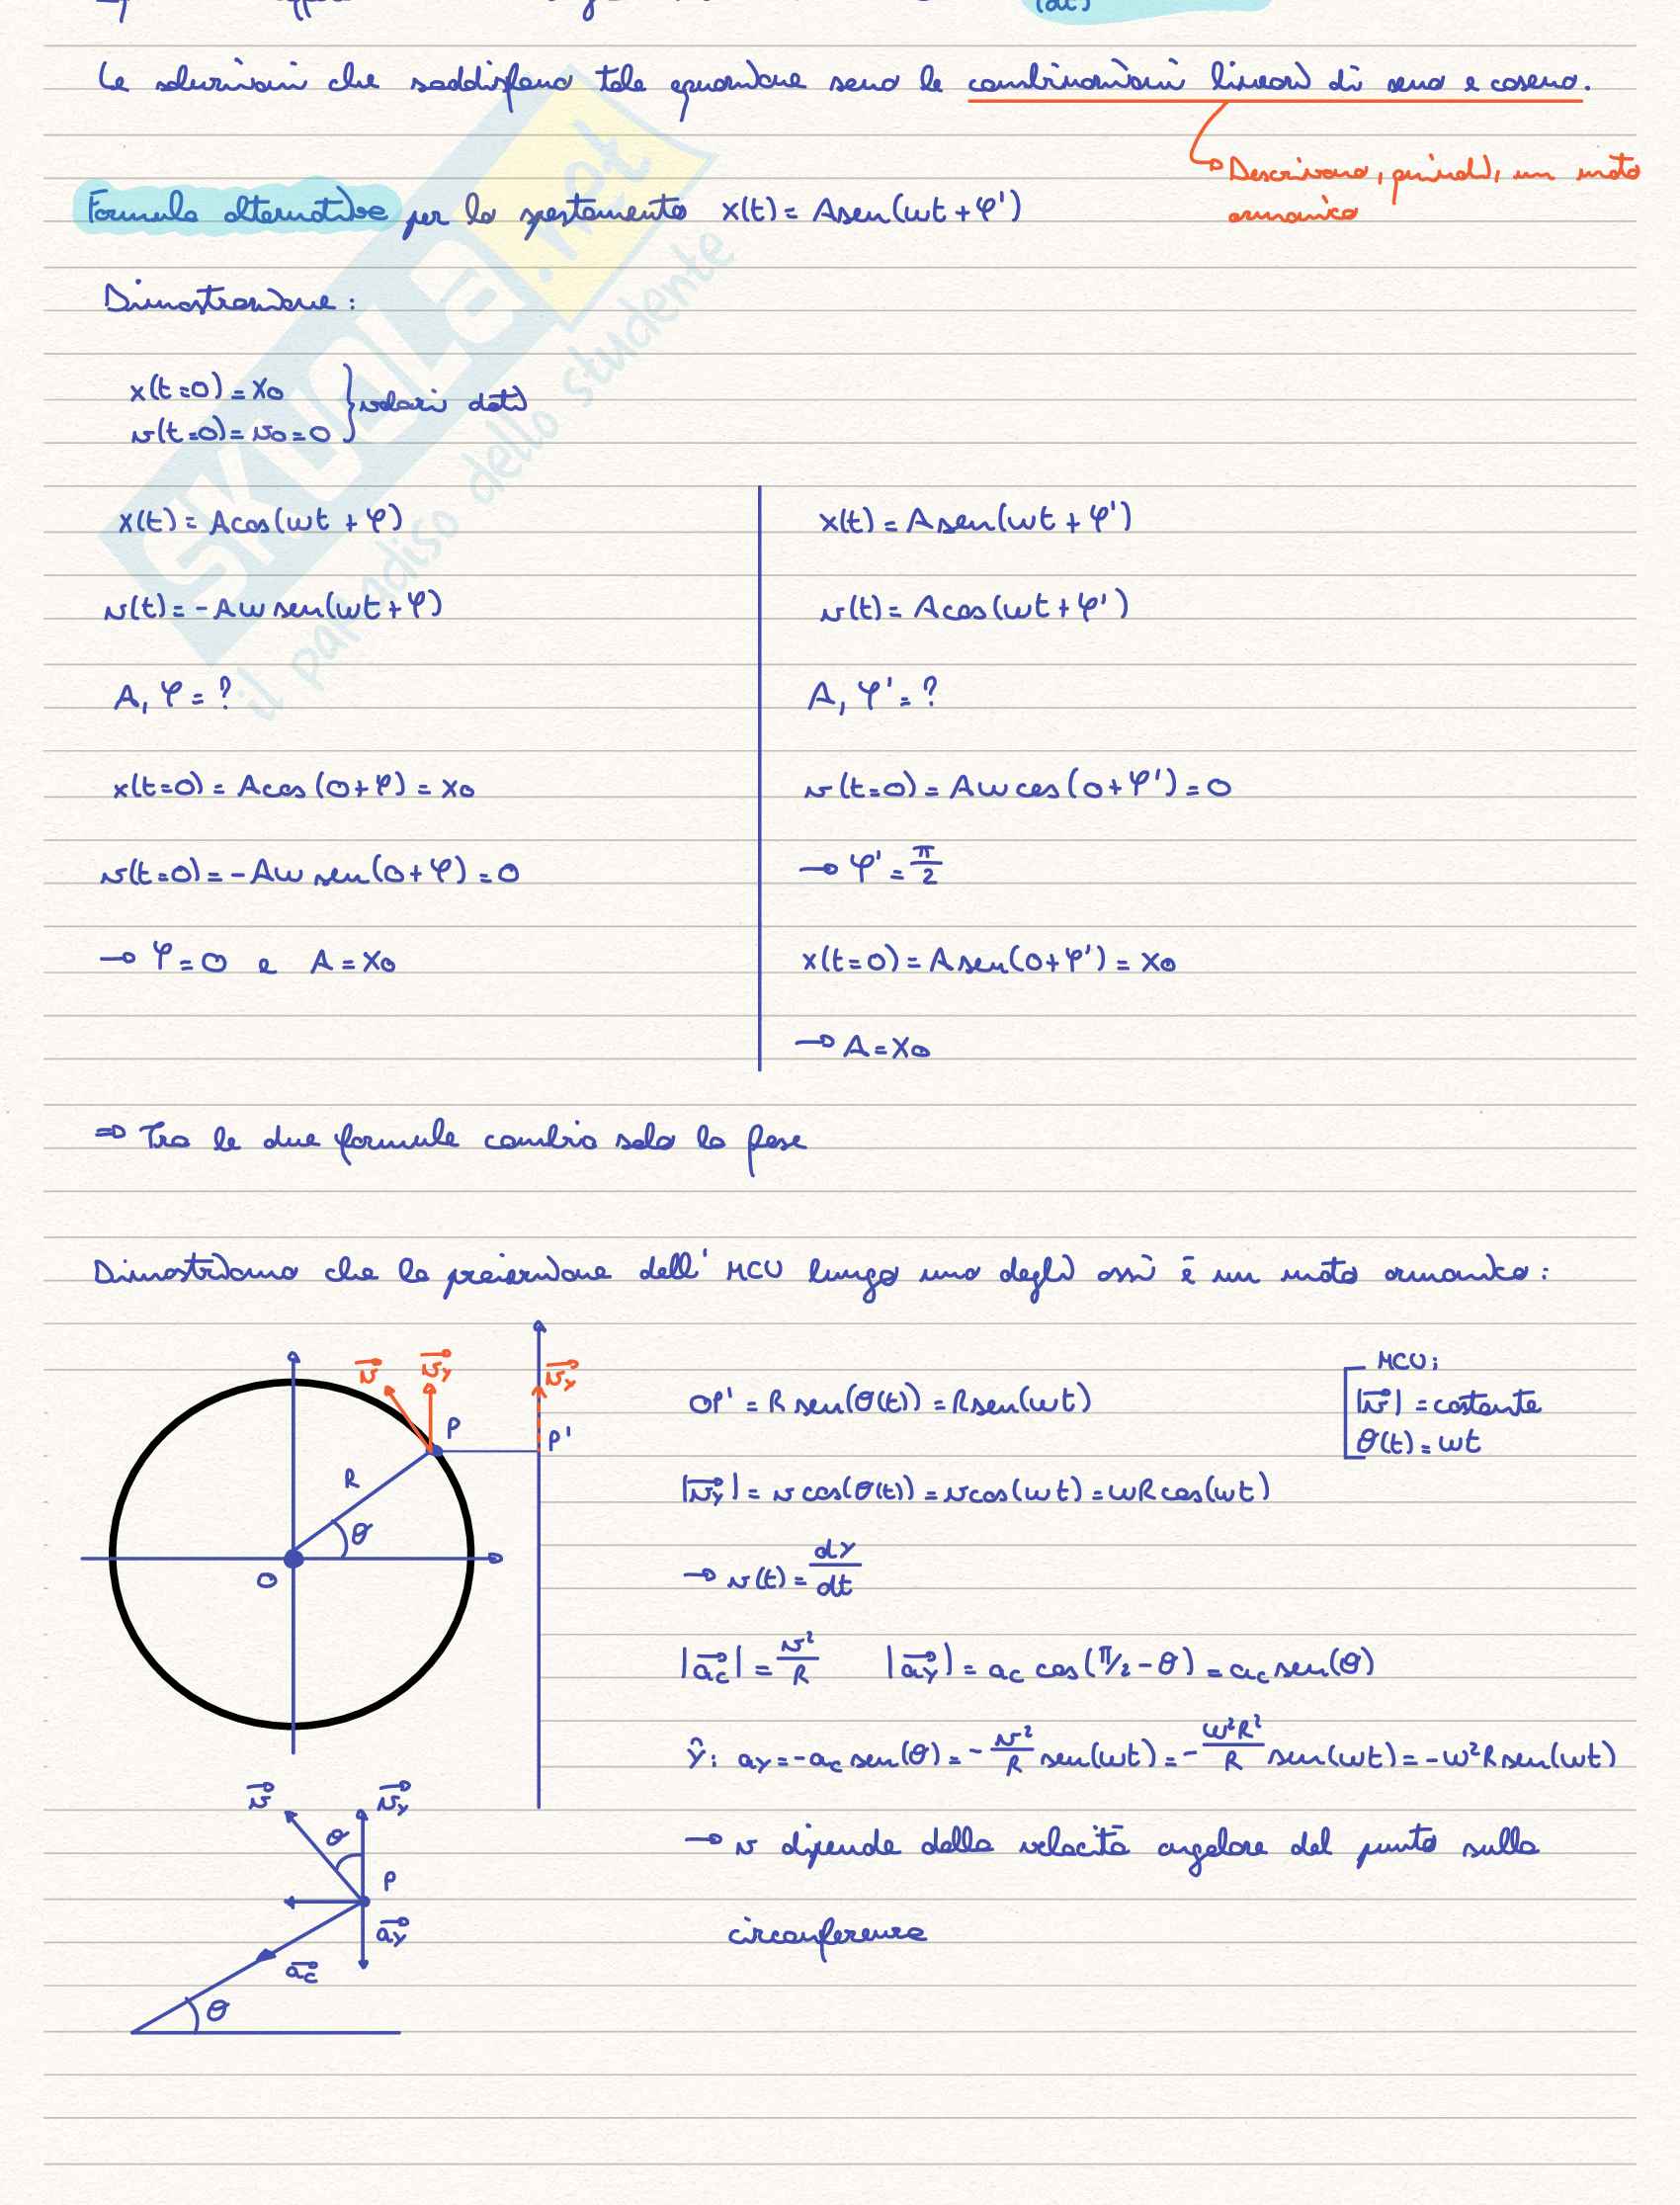 (dt)
Le soluzioni che soddisfano tale equazione sono le combinazioni lineari di seno e coseno.
Descrivono, quindi, un moto
armonico
Formula alternativa per lo spostamento x(t) = Asen(ωt + φ')
Dimostrazione:
x(t=0) = x₀
v(t=0) = v₀ = 0
} valori dati
x(t) = Acos(ωt + φ)
v(t) = -Aω sen(ωt + φ)
A, φ = ?
x(t=0) = Acos(0+φ) = x₀
v(t=0) = -Aω sen(0+φ) = 0
→ φ = 0 e A = x₀
x(t) = Asen(ωt + φ')
v(t) = Acos(ωt + φ')
A, φ' = ?
v(t=0) = Aωcos(0+φ') = 0
→ φ' = π/2
x(t=0) = Asen(0+φ') = x₀
→ A = x₀
⇒ Tra le due formule cambia solo la fase
Dimostriamo che la proiezione dell' MCU lungo uno degli assi è un moto armonico:
v⃗ v⃗y v⃗y
P P'
R
θ
O
OP' = R sen(θ(t)) = Rsen(ωt)
MCU:
|v⃗| = costante
θ(t) = ωt
|v⃗y| = v cos(θ(t)) = vcos(ωt) = ωRcos(ωt)
→ v(t) = dy/dt
|a⃗c| = v²/R |a⃗y| = ac cos(π/2 - θ) = ac sen(θ)
ŷ: ay = -ac sen(θ) = - v²/R sen(ωt) = - ω²R²/R sen(ωt) = -ω²Rsen(ωt)
→ v dipende dalla velocità angolare del punto sulla
circonferenza
v⃗ v⃗y
θ
P
a⃗y
a⃗c
θ
SKUOLA.net
il paradiso dello studente